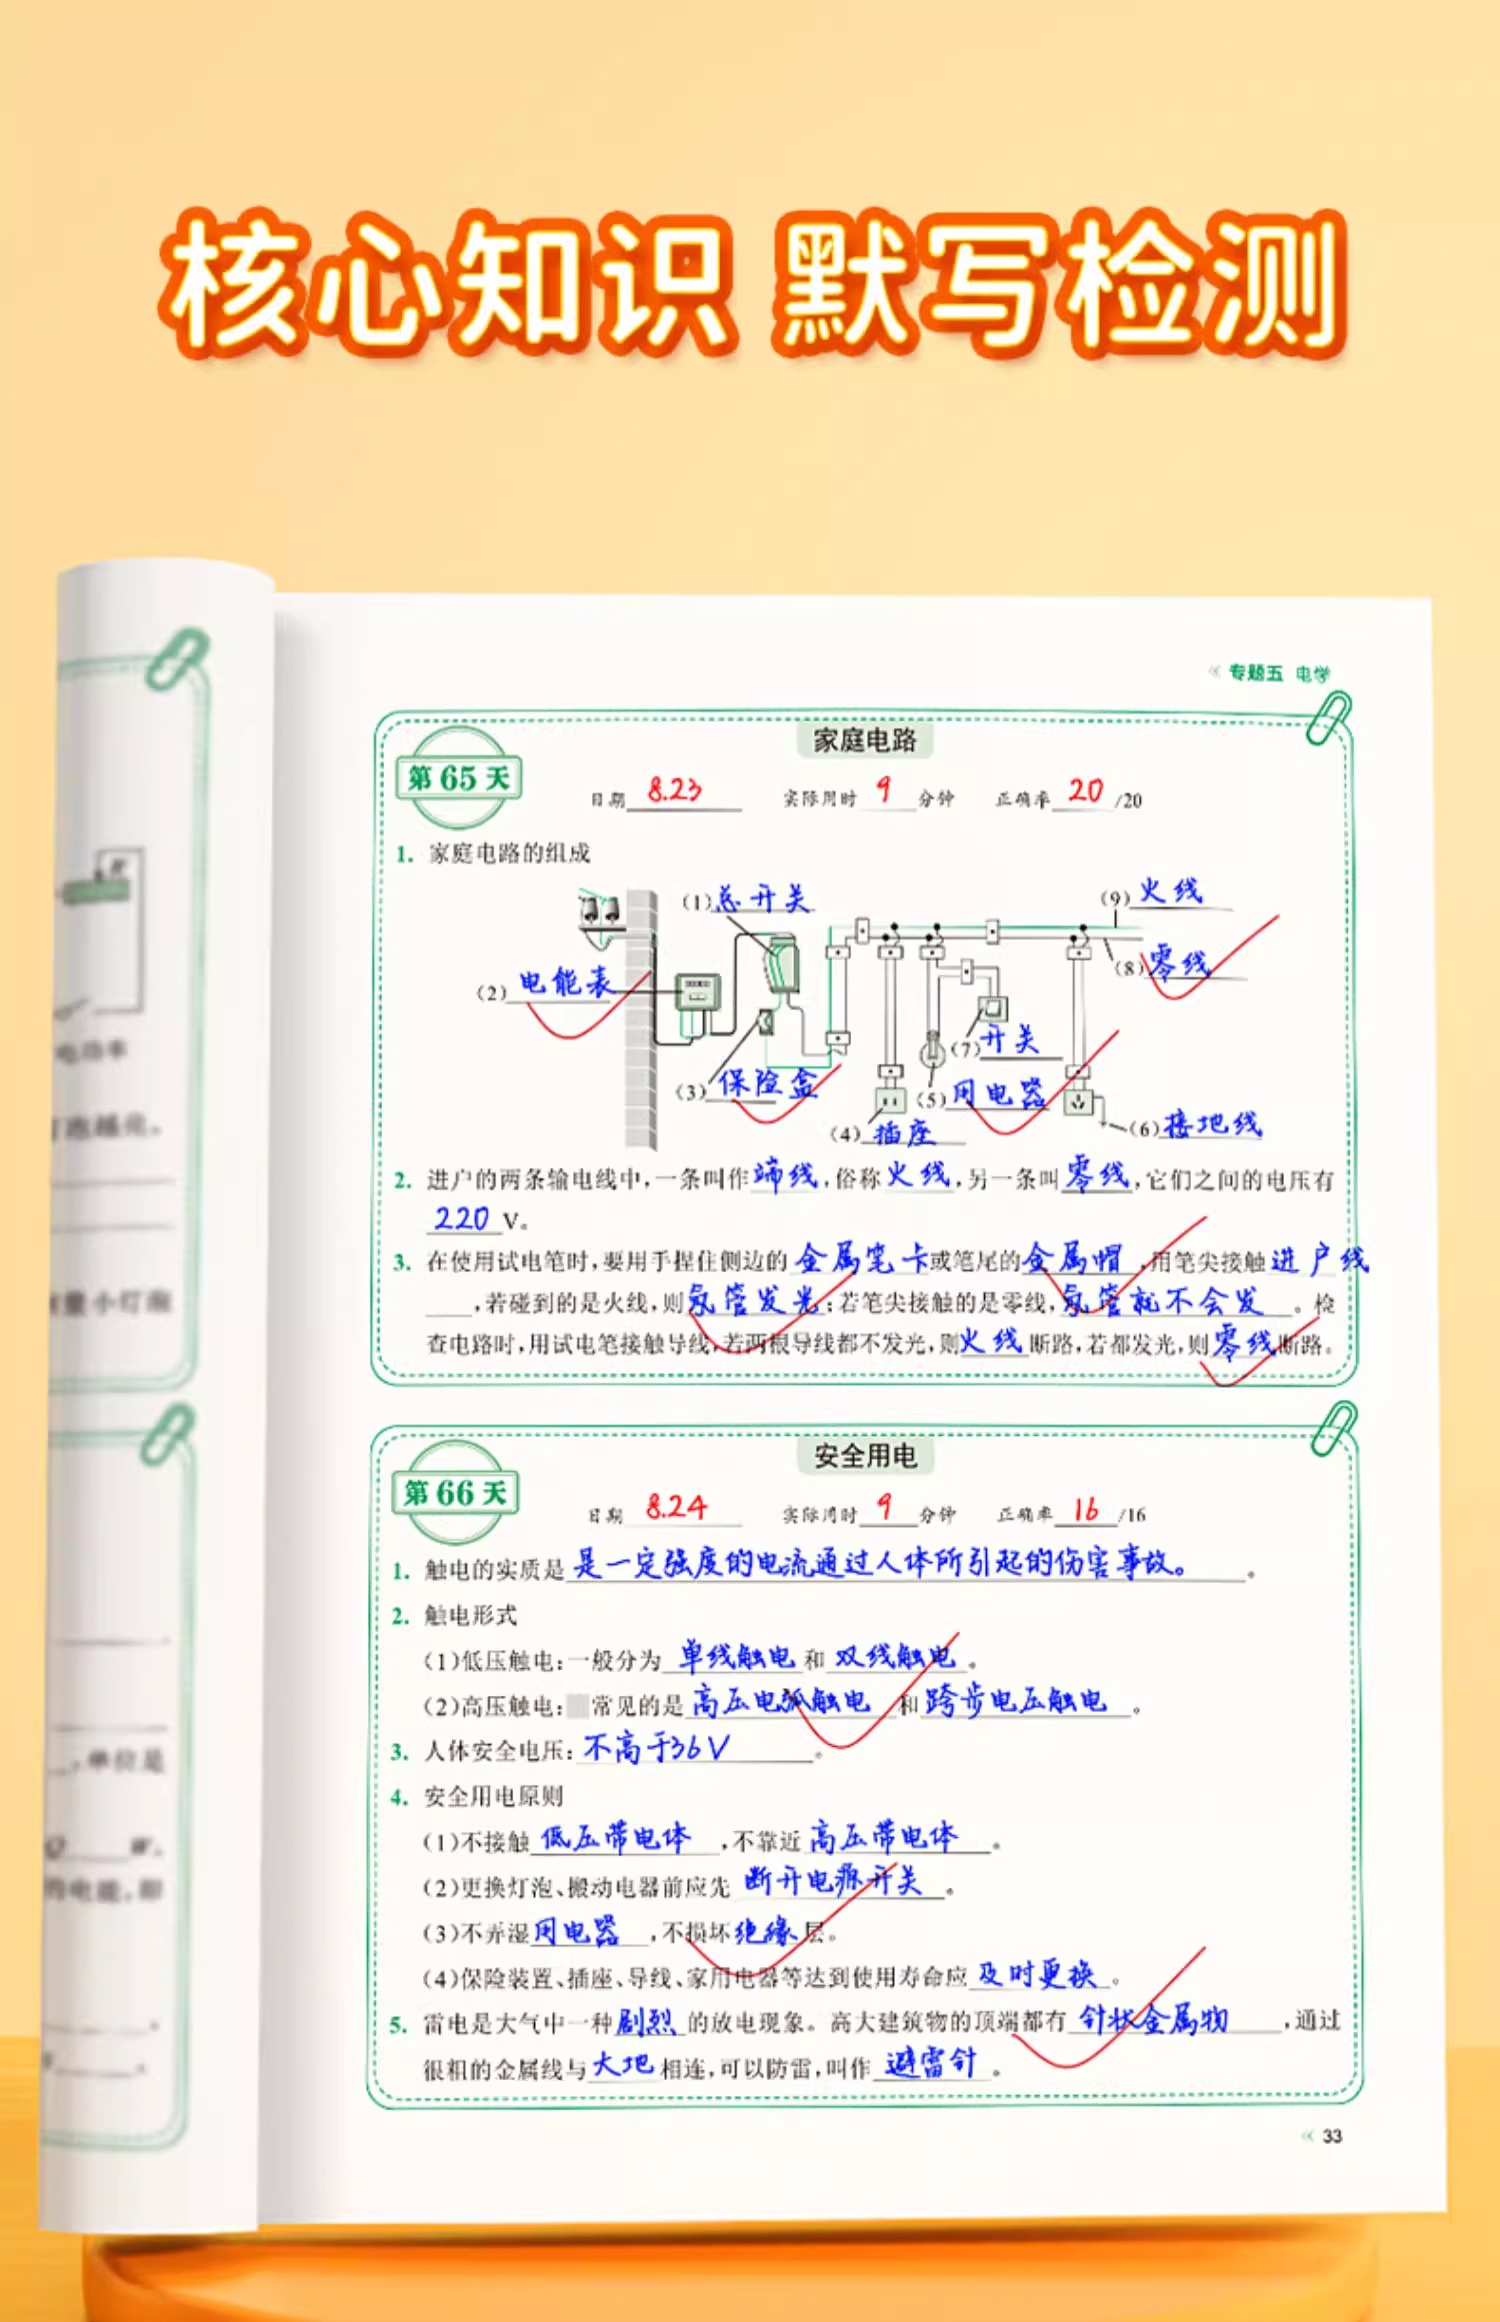 核心知识 默写检测
专题五 电学
家庭电路
第 65 天
日期 8.23 实际用时 9 分钟 正确率 20 /20
1. 家庭电路的组成
(1) 总开关
(9) 火线
(8) 零线
(2) 电能表
(7) 开关
(3) 保险盒
(5) 用电器
(4) 插座
(6) 接地线
2. 进户的两条输电线中,一条叫作端线,俗称火线,另一条叫零线,它们之间的电压有
220 V。
3. 在使用试电笔时,要用手捏住侧边的金属笔卡或笔尾的金属帽,用笔尖接触进户线
,若碰到的是火线,则氖管发光;若笔尖接触的是零线,氖管就不会发。检
查电路时,用试电笔接触导线,若两根导线都不发光,则火线断路,若都发光,则零线断路。
安全用电
第 66 天
日期 8.24 实际用时 9 分钟 正确率 16 /16
1. 触电的实质是是一定强度的电流通过人体所引起的伤害事故。。
2. 触电形式
(1)低压触电:一般分为 单线触电 和 双线触电。
(2)高压触电: 常见的是 高压电弧触电 和 跨步电压触电。
3. 人体安全电压:不高于36V。
4. 安全用电原则
(1)不接触 低压带电体,不靠近 高压带电体。
(2)更换灯泡、搬动电器前应先 断开电源开关。
(3)不弄湿用电器,不损坏绝缘层。
(4)保险装置、插座、导线、家用电器等达到使用寿命应及时更换。
5. 雷电是大气中一种剧烈的放电现象。高大建筑物的顶端都有 针状金属物,通过
很粗的金属线与大地相连,可以防雷,叫作 避雷针。
33
电功率
量小灯泡
,单位是
Q W。
的电能,即